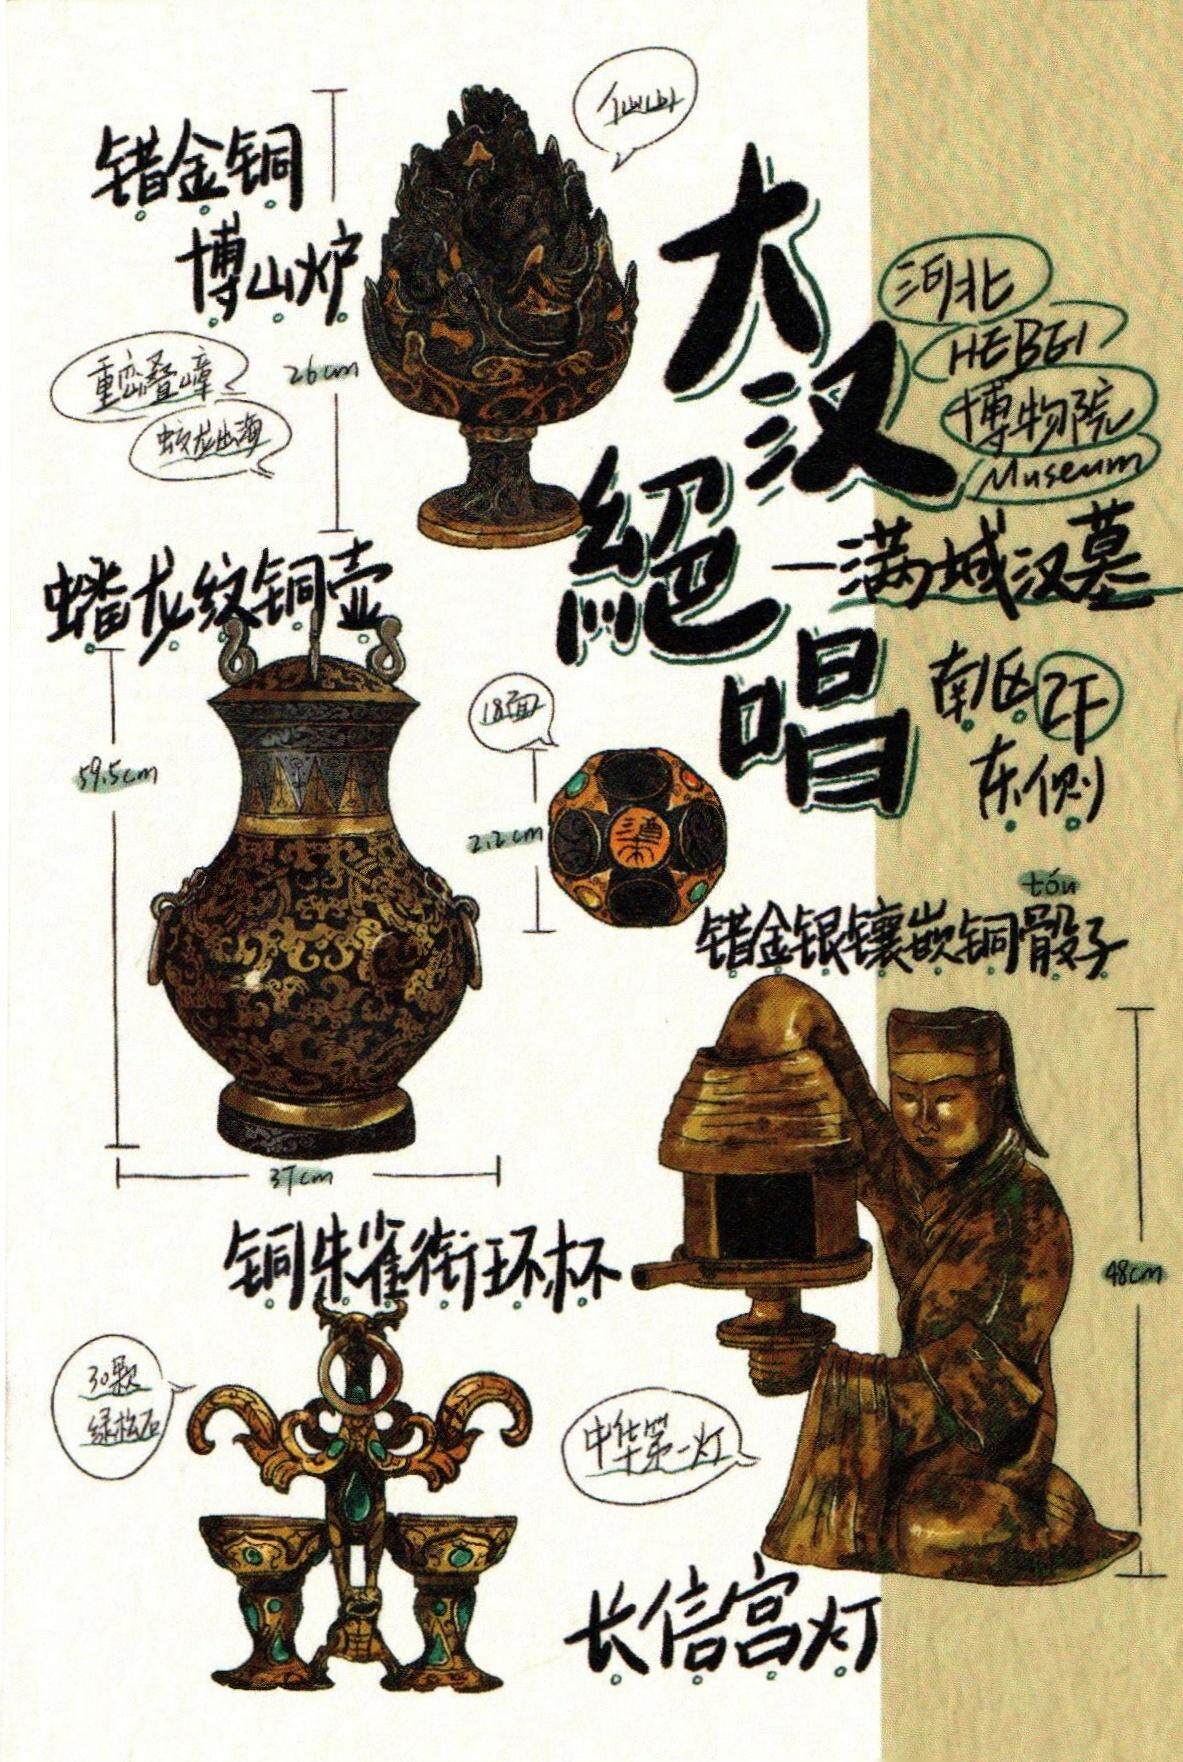 错金铜
博山炉
仙山
26cm
重峦叠嶂
蛟龙出海
大汉
絕唱
河北
HEBEI
博物院
Museum
—满城汉墓
南区2F
东侧
蟠龙纹铜壶
59.5cm
37cm
18面
2.2cm
酒来
tóu
错金银镶嵌铜骰子
48cm
铜朱雀衔环杯
30颗
绿松石
中华第一灯
长信宫灯